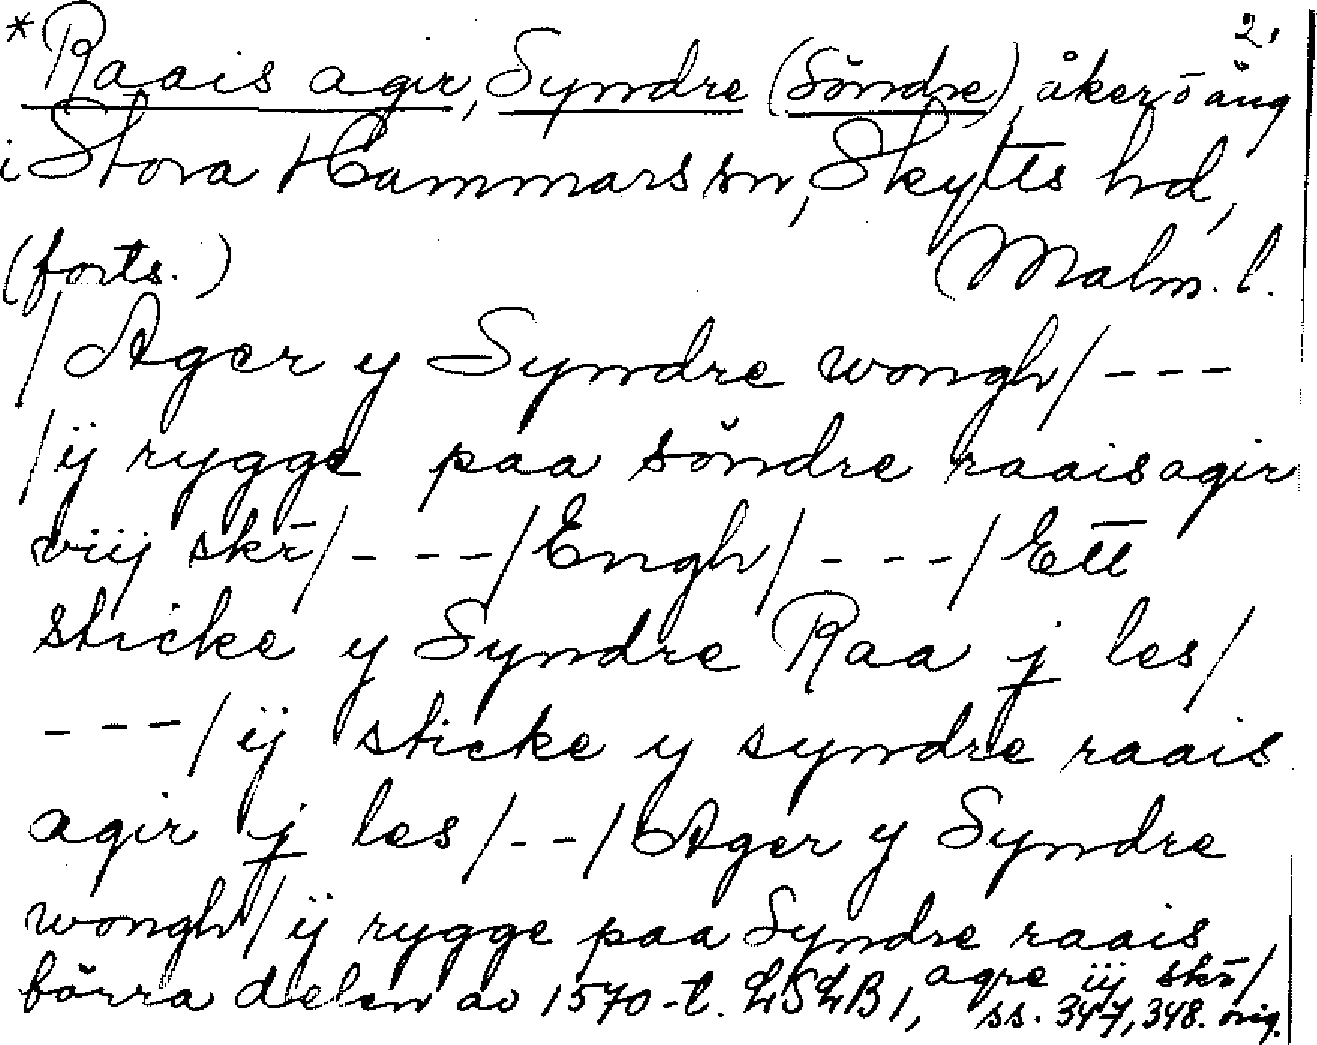 2.
*Raais agir, Syndre (Söndre), åker o äng
i Stora Hammars sn, Skytts hd,
(forts.) (Malm. l.
/Ager y Syndre wongh/---
/ij rygge paa söndre raais agir
viij skr̄/---/Engh/---/Ett
sticke y Syndre Raa j les/
---/ij sticke y syndre raais
agir j les/--/Ager y Syndre
wongh/ij rygge paa Syndre raais
agre iij skr̄/
förra delen av 1570-t. LSLB 1, ss. 347, 348. orig.